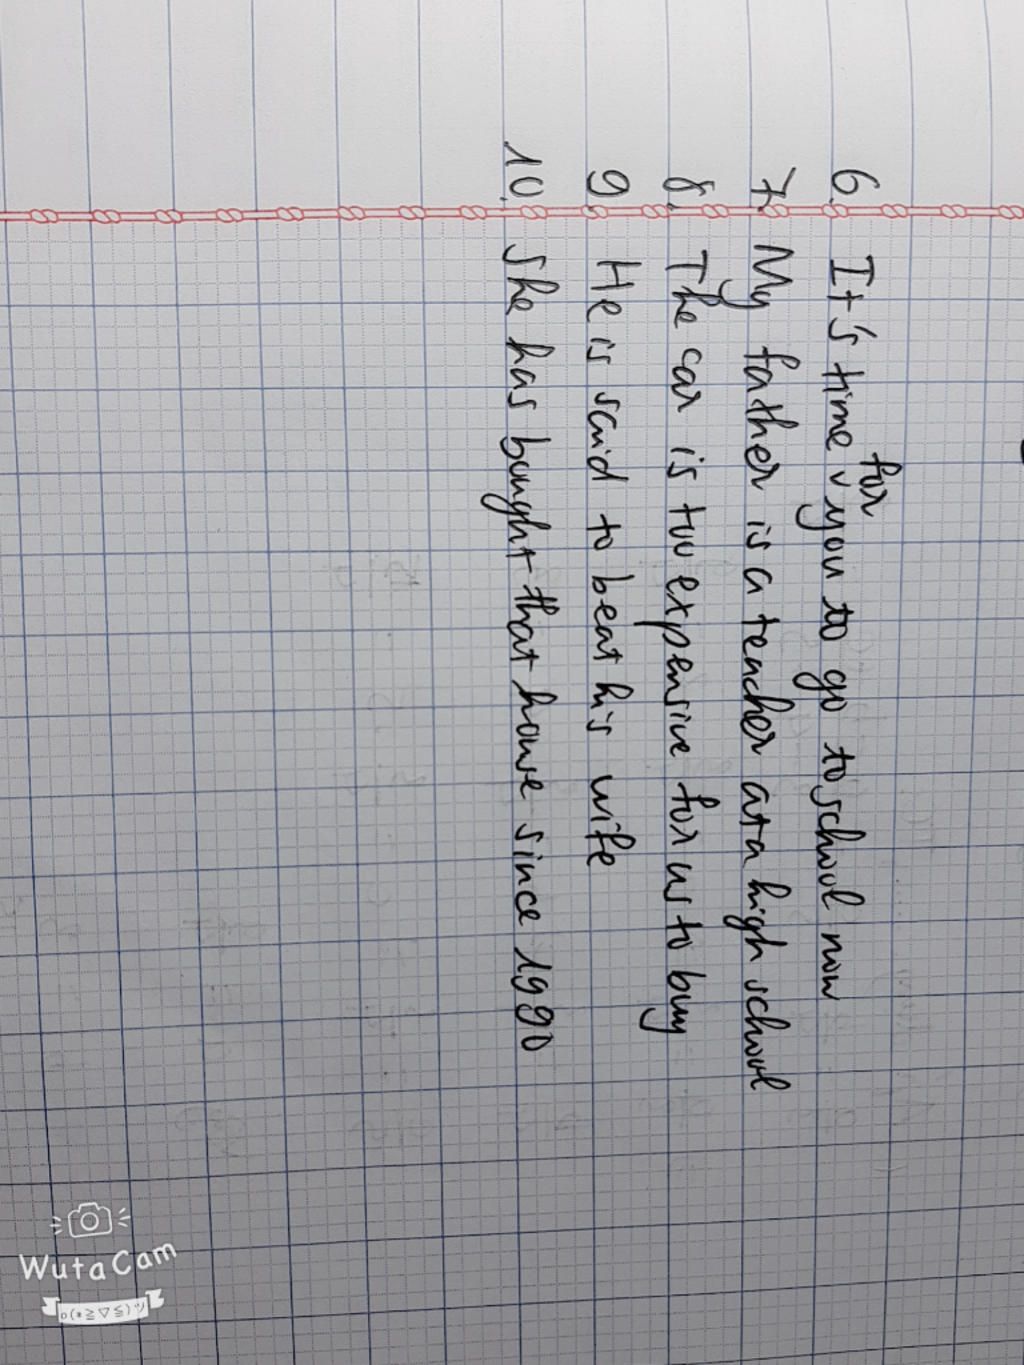 6. It's time for you to go to school now
7. My father is a teacher at a high school
8. The car is too expensive for us to buy
9. He is said to beat his wife
10. She has bought that house since 1990
WutaCam
o(*≧▽≦)ツ